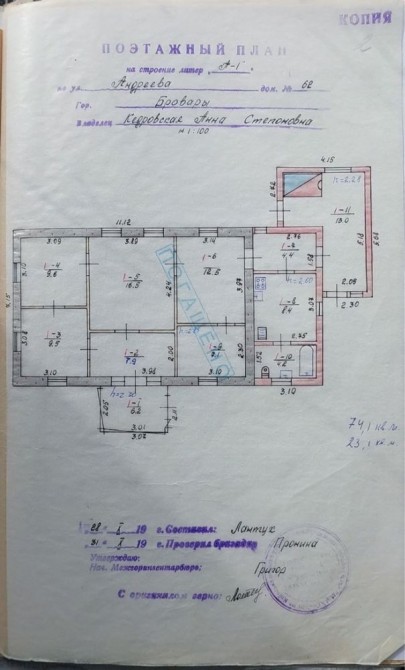 КОПИЯ
ПОЭТАЖНЫЙ ПЛАН
на строение литер „А-I“
по ул. Андреева дом. № 62
Гор. Бровары
Владелец Кедровская Анна Степоновна
М 1:100
4.15
2.72
h=2.28
1-11
18.0
5.18
2.08
2.30
11.12
3.09
3.14
2.76
1-7
4.4
1.58
1-4
9.6
3.10
1-5
16.5
4.24
1-6
12.5
3.98
1-8
8.4
3.08
1-3
9.5
3.08
1-2
7.9
2.00
1-9
2.30
2.75
1-10
1.52
3.10
3.98
3.10
3.10
1-1
2.05
3.01
3.02
ПОГАШЕНО
74,1 кв.м.
23,1 кв.м.
„28“ I 19 г. Составил: Лантух
„31“ I 19 г. Проверил бригадир Пронина
Утверждаю:
Нач. Межгоринвентарбюро: Григор
С оригиналом верно: